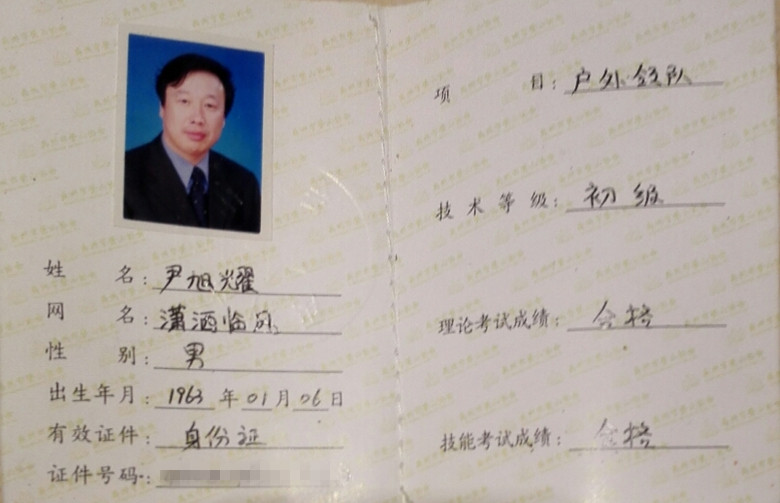 姓 名：尹旭耀
网 名：潇洒临风
性 别：男
出生年月：1963 年 01 月 06 日
有效证件：身份证
证件号码：
项 目：户外领队
技 术 等 级：初级
理论考试成绩：合格
技能考试成绩：合格